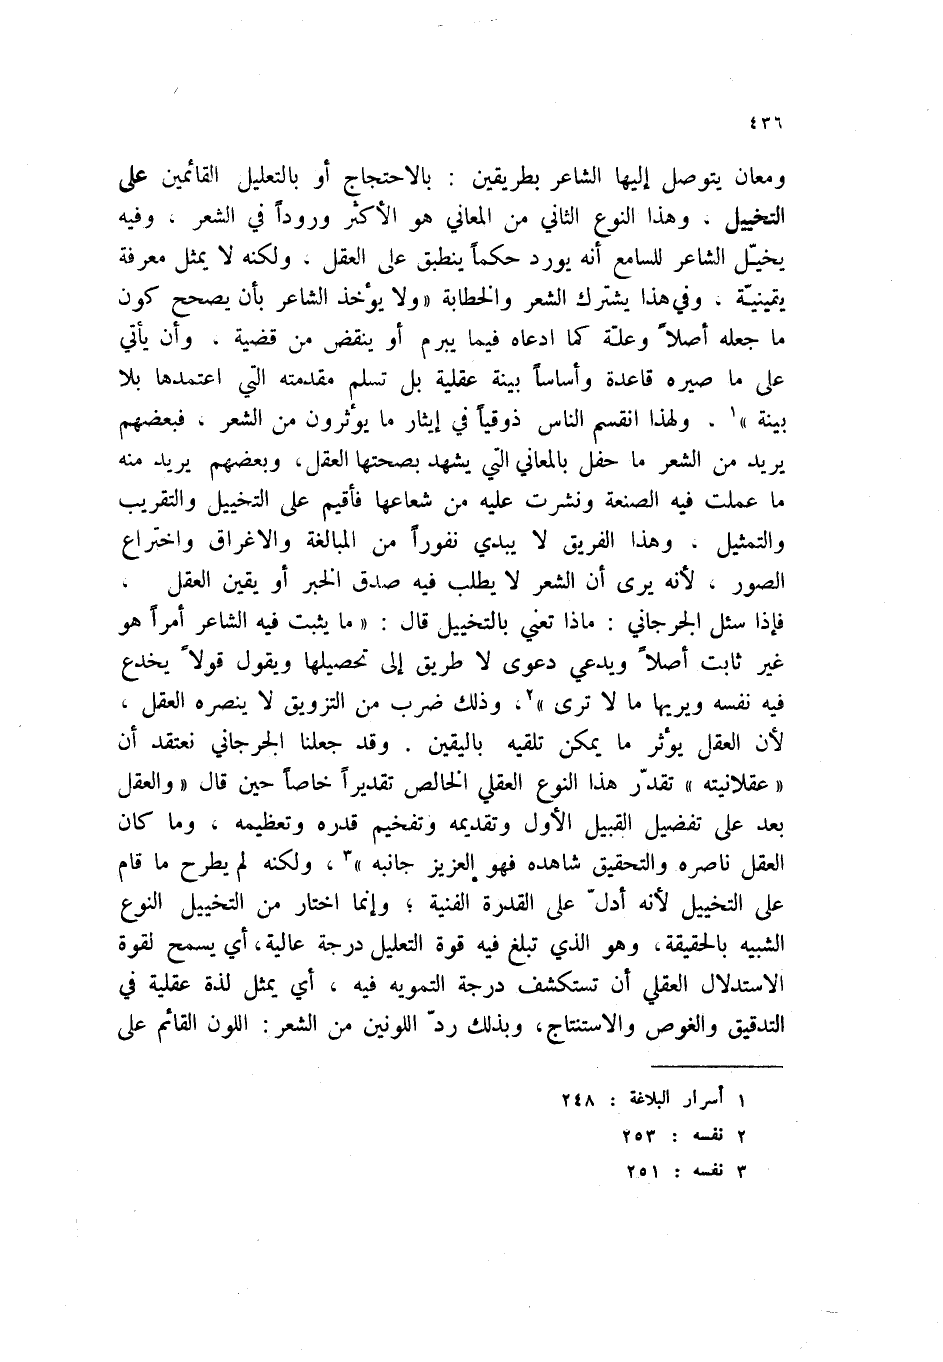 ٤٣٦
ومعان يتوصل إليها الشاعر بطريقين : بالاحتجاج أو بالتعليل القائمين على
التخييل . وهذا النوع الثاني من المعاني هو الأكثر وروداً في الشعر ، وفيه
يخيّل الشاعر للسامع أنه يورد حكماً ينطبق على العقل . ولكنه لا يمثل معرفة
يقينيّة . وفي هذا يشترك الشعر والخطابة «ولا يؤخذ الشاعر بأن يصحح كون
ما جعله أصلاً وعلّة كما ادعاه فيما يبرم أو ينقض من قضية . وأن يأتي
على ما صيره قاعدة وأساساً بينة عقلية بل تسلم مقدمته التي اعتمدها بلا
بينة »١ . ولهذا انقسم الناس ذوقياً في إيثار ما يؤثرون من الشعر ، فبعضهم
يريد من الشعر ما حفل بالمعاني التي يشهد بصحتها العقل، وبعضهم يريد منه
ما عملت فيه الصنعة ونشرت عليه من شعاعها فأقيم على التخييل والتقريب
والتمثيل . وهذا الفريق لا يبدي نفوراً من المبالغة والاغراق واختراع
الصور ، لأنه يرى أن الشعر لا يطلب فيه صدق الخبر أو يقين العقل .
فإذا سئل الجرجاني : ماذا تعني بالتخييل قال : « ما يثبت فيه الشاعر أمراً هو
غير ثابت أصلاً ويدعي دعوى لا طريق إلى تحصيلها ويقول قولاً يخدع
فيه نفسه ويريها ما لا ترى »٢، وذلك ضرب من التزويق لا ينصره العقل ،
لأن العقل يؤثر ما يمكن تلقيه باليقين . وقد جعلنا الجرجاني نعتقد أن
« عقلانيته » تقدّر هذا النوع العقلي الخالص تقديراً خاصاً حين قال « والعقل
بعد على تفضيل القبيل الأول وتقديمه وتفخيم قدره وتعظيمه ، وما كان
العقل ناصره والتحقيق شاهده فهو العزيز جانبه »٣ ، ولكنه لم يطرح ما قام
على التخييل لأنه أدلّ على القدرة الفنية ؛ وإنما اختار من التخييل النوع
الشبيه بالحقيقة، وهو الذي تبلغ فيه قوة التعليل درجة عالية، أي يسمح لقوة
الاستدلال العقلي أن تستكشف درجة التمويه فيه ، أي يمثل لذة عقلية في
التدقيق والغوص والاستنتاج، وبذلك ردّ اللونين من الشعر : اللون القائم على
١ أسرار البلاغة : ٢٤٨
٢ نفسه : ٢٥٣
٣ نفسه : ٢٥١